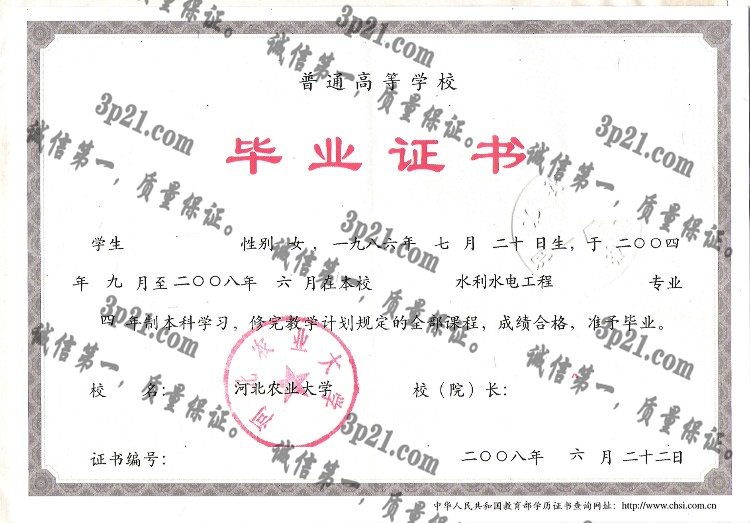 普通高等学校
毕业证书
学生 性别 女，一九八六年 七 月 二十 日生，于 二〇〇四
年 九 月至 二〇〇八年 六 月在本校 水利水电工程 专业
四 年制本科学习，修完教学计划规定的全部课程，成绩合格，准予毕业。
校 名： 河北农业大学 校（院）长：
河北农业大学
证书编号： 二〇〇八年 六 月 二十二日
中华人民共和国教育部学历证书查询网址：http://www.chsi.com.cn
3p21.com
诚信第一，质量保证。
3p21.com
诚信第一，质量保证。
3p21.com
诚信第一，质量保证。
3p21.com
诚信第一，质量保证。
3p21.com
诚信第一，质量保证。
3p21.com
诚信第一，质量保证。
3p21.com
诚信第一，质量保证。
3p21.com
诚信第一，质量保证。